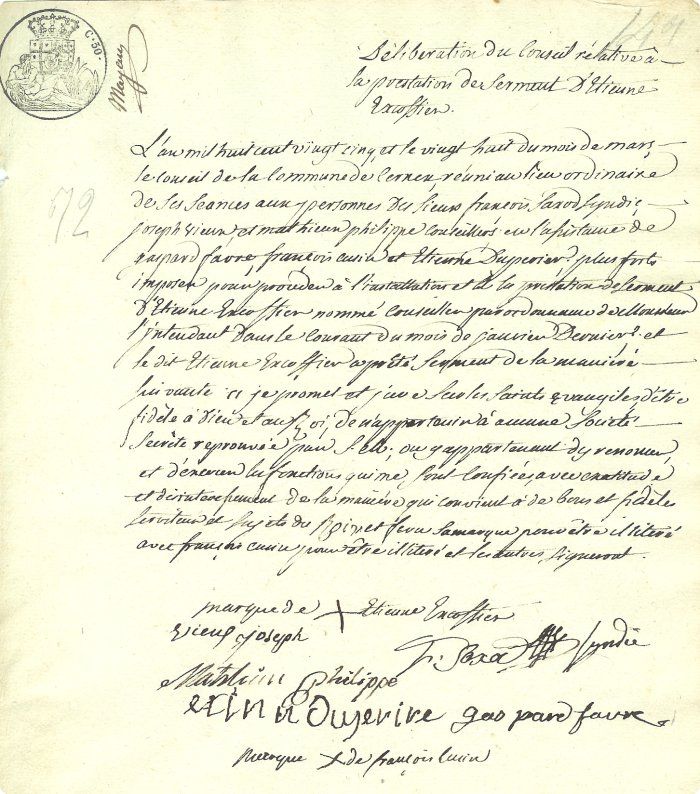 C. 50.
Déliberation du Conseil rélative à
la prestation de Serment D'Etienne
Excoffier.
L'an mil huit cent vingt cinq, et le vingt huit du mois de mars
le conseil de la Commune de Cernex, réuni au lieu ordinaire
de ses séances aux personnes des sieurs françois Syndic,
joseph Vieux et mathieu philippe Conseillés en l'assistance de
gaspard favre françois cusin et Etienne Duperier plus forts
imposés pour procéder à l'installation et à la prestation de Serment
D'Etienne Excoffier nommé Conseiller par ordonnance de Monsieur
l'intendant Dans le Courant du mois de janvier Dernier et
le dit Etienne Excoffier a prêté Serment de la maniéré
suivante je promet et jure sur les Saints Evangiles d'être
fidèle à Dieu et au Roi, de n'appartenir à aucune Société
Secrète reprouvée par ou y appartenant d'y renoncer,
et d'éxercer les fonctions qui me sont Confiées avec exactitude
et de la manière qui convient à de bons et fidèles
serviteur et Sujets du Roi, et fera Sa marque pour être illiteré
avec françois cusin pour être illiteré et les autres Signeront.
marque de + Etienne Excoffier
Vieux joseph
Syndic
Mathieu philippe
etinn Duperire gaspard favre
marque + de françois Cusin
72